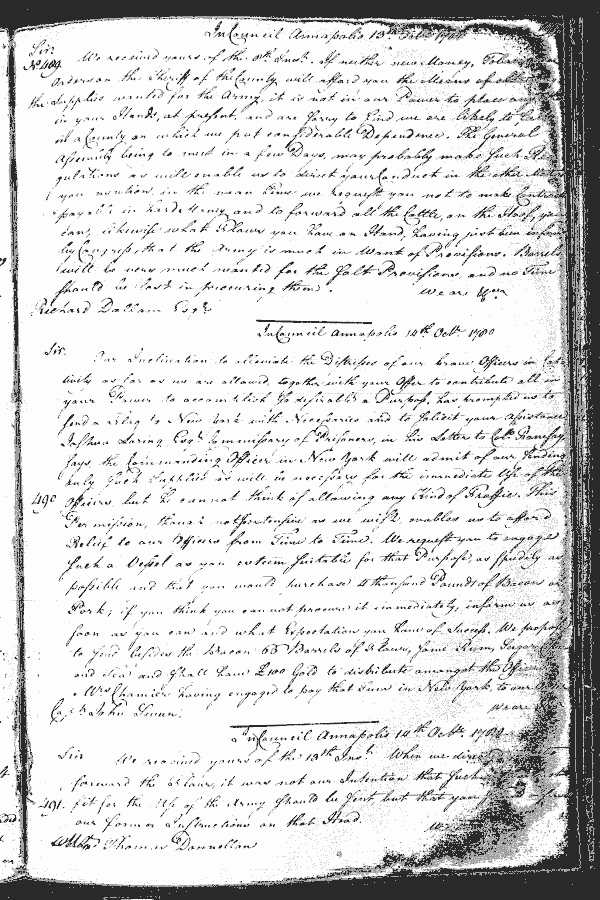 In Council Annapolis 13th Octr 1780
Sir:
No 489. We received yours of the 8th Inst. If neither new Money, Tobacco
Orders on the Sheriff of the County will afford you the Means of
the Supplies wanted for the Army, it is not in our Power to place any
in your Hands, at present, and are sorry to find we are likely to
in a County on which we put considerable Dependence. The General
Assembly being to meet in a few Days, may probably make such Re
gulations as will enable us to direct your Conduct in the other
you mention, in the mean Time we request you not to make Contracts
payable in hard Money and to forward all the Cattle, on the Hoof, you
can, likewise what Flour you have on Hand, having just been inform
by Congress, that the Army is much in Want of Provisions. Barrels
will be very much wanted for the Salt Provisions, and no Time
should be lost in procuring them. We are
Richard Dallam Esqr
In Council Annapolis 14th Octr 1780
Sir.
Our Inclination to alleviate the Distresses of our brave Officers in Cap
tivity as far as we are allowed, together with your Offer to contribute all in
your Power to accomplish so desirable a Purpose, has prompted us to
send a Flag to New York with Necessaries and to solicit your Assistance
Joshua Loring Esqr Commissary of Prisoners, in his Letter to Col. Ramsay
says, the Commanding Officer in New York will admit of our sending
only such Supplies as will be necessary for the immediate Use of the
490 Officers, but he cannot think of allowing any Kind of Traffic. This
Permission, though not so extensive as we wish, enables us to afford
Relief to our Officers from Time to Time. We request you to engage
such a Vessel as you esteem suitable for that Purpose, as speedily as
possible and that you would purchase 4 thousand Pounds of Bacon or
Pork; if you think you cannot procure it immediately, inform us as
soon as you can and what Expectation you have of Success. We propose
to send besides the Bacon 60 Barrels of Flour, some Rum, Sugar
and Tea and shall have £100 Gold to distribute amongst the
Mrs Chamier having engaged to pay that Sum in New York, to our
We are
Capt John Gunn.
In Council Annapolis 14th Octr 1780
Sir We received yours of the 13th Inst. When we
forward the Flour, it was not our Intention that such
491. fit for the Use of the Army should be sent, but that you
our former Instructions on that Head.
Thomas Donnellan